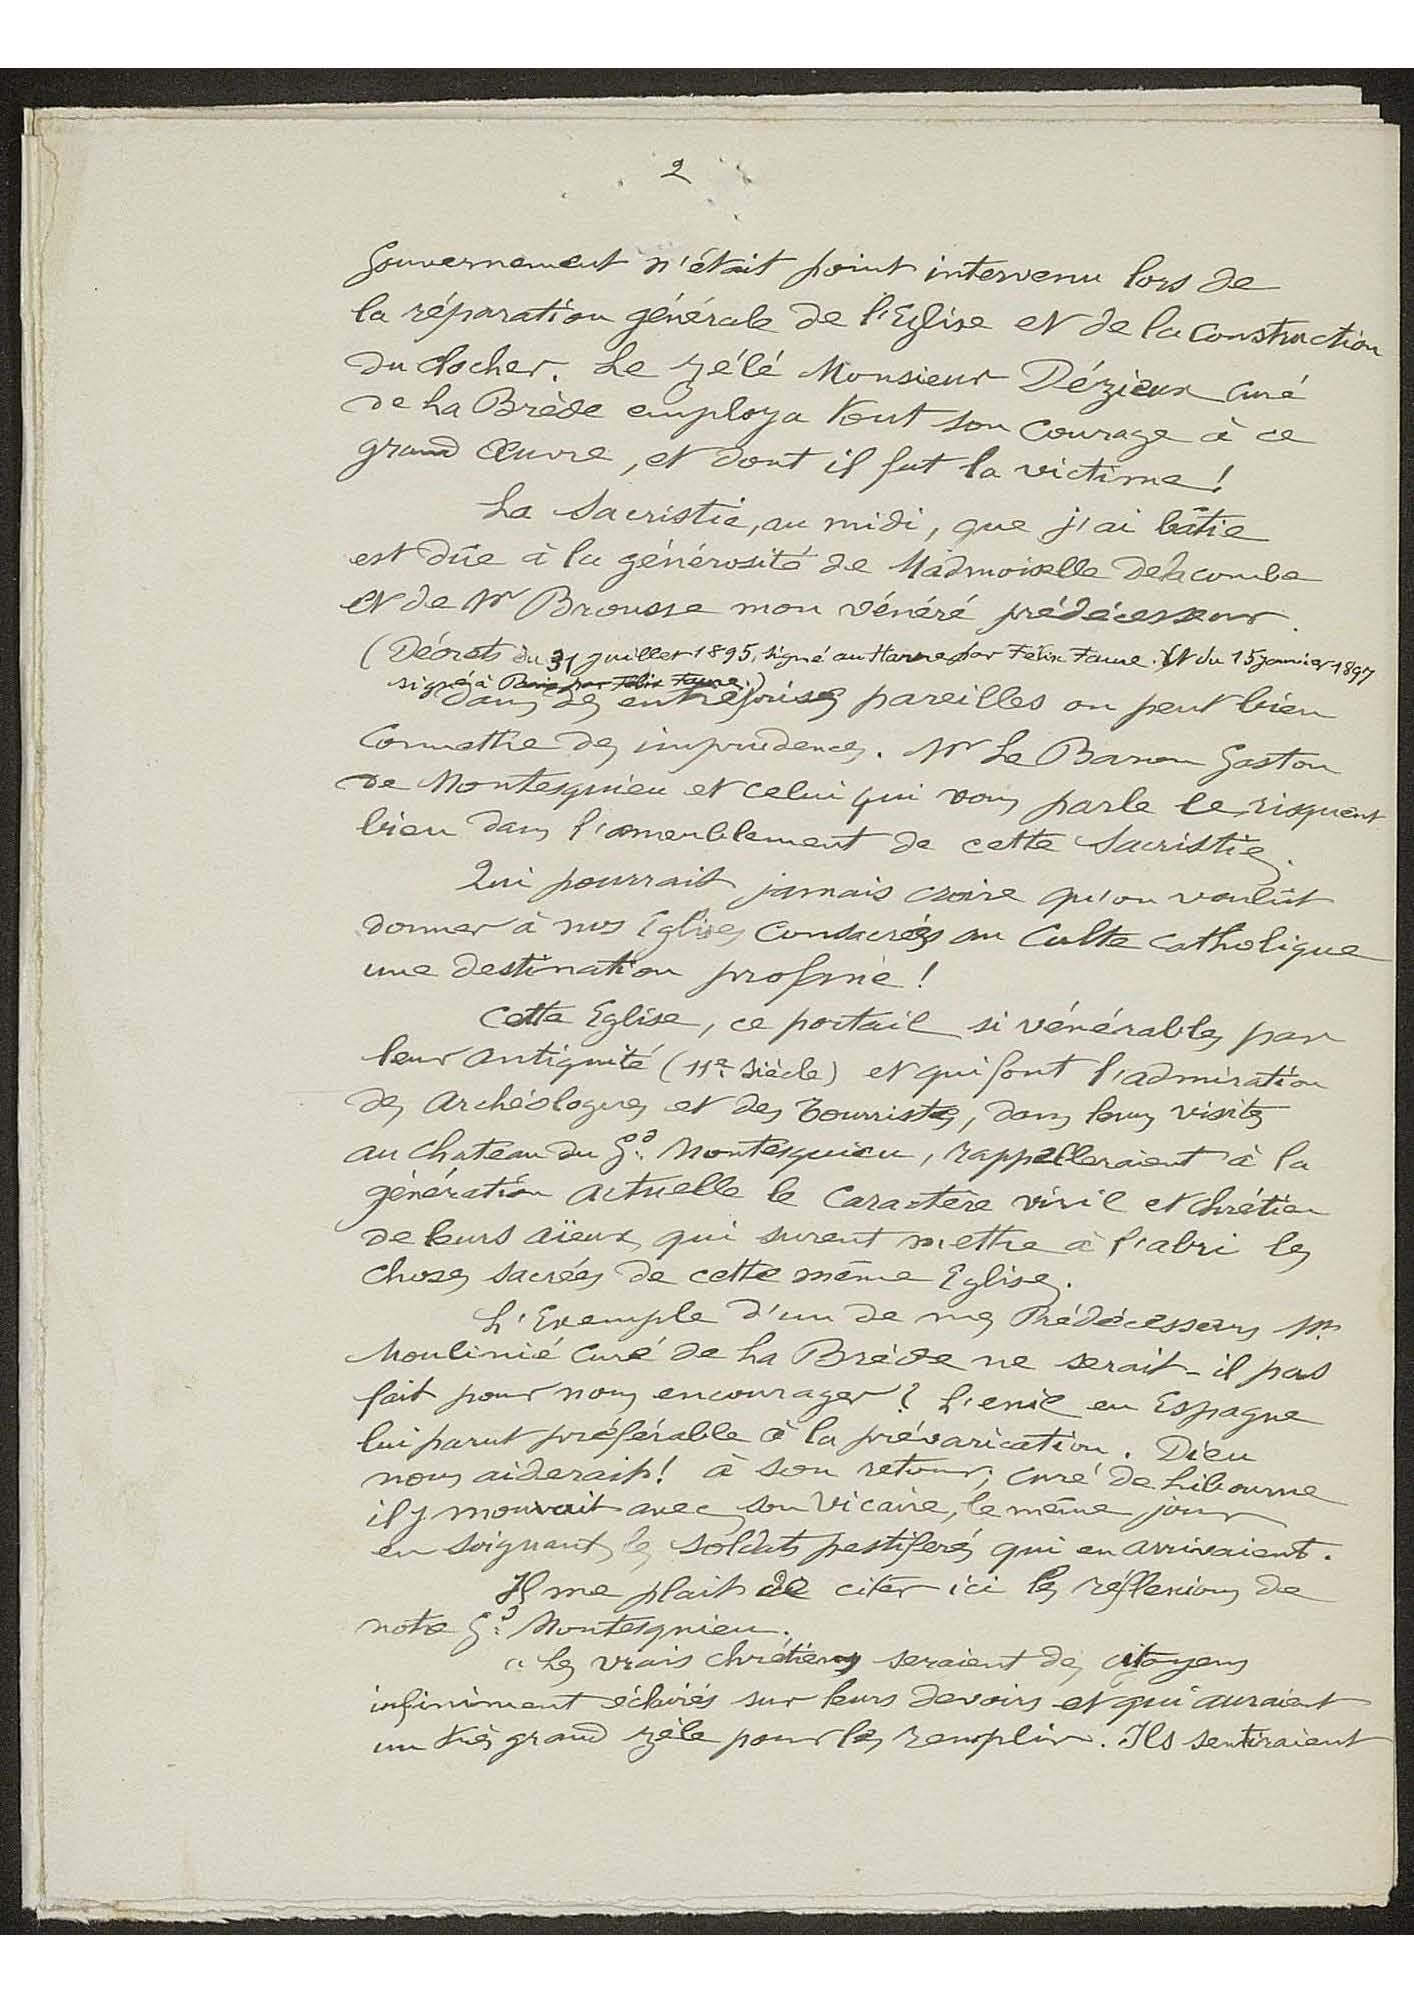 2
Gouvernement n'était point intervenu lors de
la réparation générale de l'Eglise et de la construction
du clocher. Le zélé Monsieur Dézieux curé
de La Brède employa tout son courage à ce
grand Œuvre, et dont il fut la victime!
La Sacristie, au midi, que j'ai bâtie
est dûe à la générosité de Madmoiselle Delacombe
et de Mr Brousse mon vénéré prédécesseur.
(Décrets du 31 juillet 1895, signé au Havre par Félix Faure. Et du 15 janvier 1897
signé à Paris par Félix Faure.)
dans des entreprises pareilles on peut bien
commettre des imprudences. Mr Le Baron Gaston
de Montesquieu et celui qui vous parle le risquent
bien dans l'ameublement de cette Sacristie.
Qui pourrait jamais croire qu'on voulût
donner à nos Eglises consacrées au Culte catholique
une destination profane!
Cette Eglise, ce portail si vénérables par
leur antiquité (11e siècle) et qui font l'admiration
des archéologues et des Tourristes, dans leurs visites
au chateau du Gd Montesquieu, rappelleraient à la
génération actuelle le caractère viril et chrétien
de leurs aïeux, qui surent mettre à l'abri les
choses sacrées de cette même Eglise.
L'Exemple d'un de mes Prédécesseurs Mr
Moulinié curé de La Brède ne serait-il pas
fait pour nous encourager? L'exil en Espagne
lui parut préférable à la prévarication. Dieu
nous aiderait! à son retour, curé de Libourne
il y mouvait avec son Vicaire, le même jour
en soignant les soldats pestiferés qui en arrivaient.
Il me plait de citer ici les réflexions de
notre Gd Montesquieu.
" Les vrais chrétiens seraient des citoyens
infiniment éclairés sur leurs devoirs et qui auraient
un très grand zèle pour les remplir. Ils sentiraient